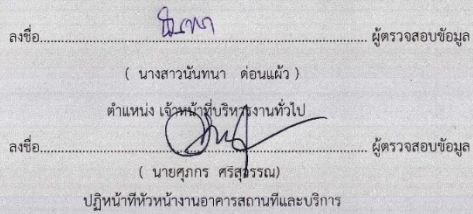 ลงชื่อ นันทนา ผู้ตรวจสอบข้อมูล
( นางสาวนันทนา ด่อนแผ้ว )
ตำแหน่ง เจ้าหน้าที่บริหารงานทั่วไป
ลงชื่อ ผู้ตรวจสอบข้อมูล
( นายศุภกร ศรีสุวรรณ)
ปฏิหน้าที่หัวหน้างานอาคารสถานที่และบริการ